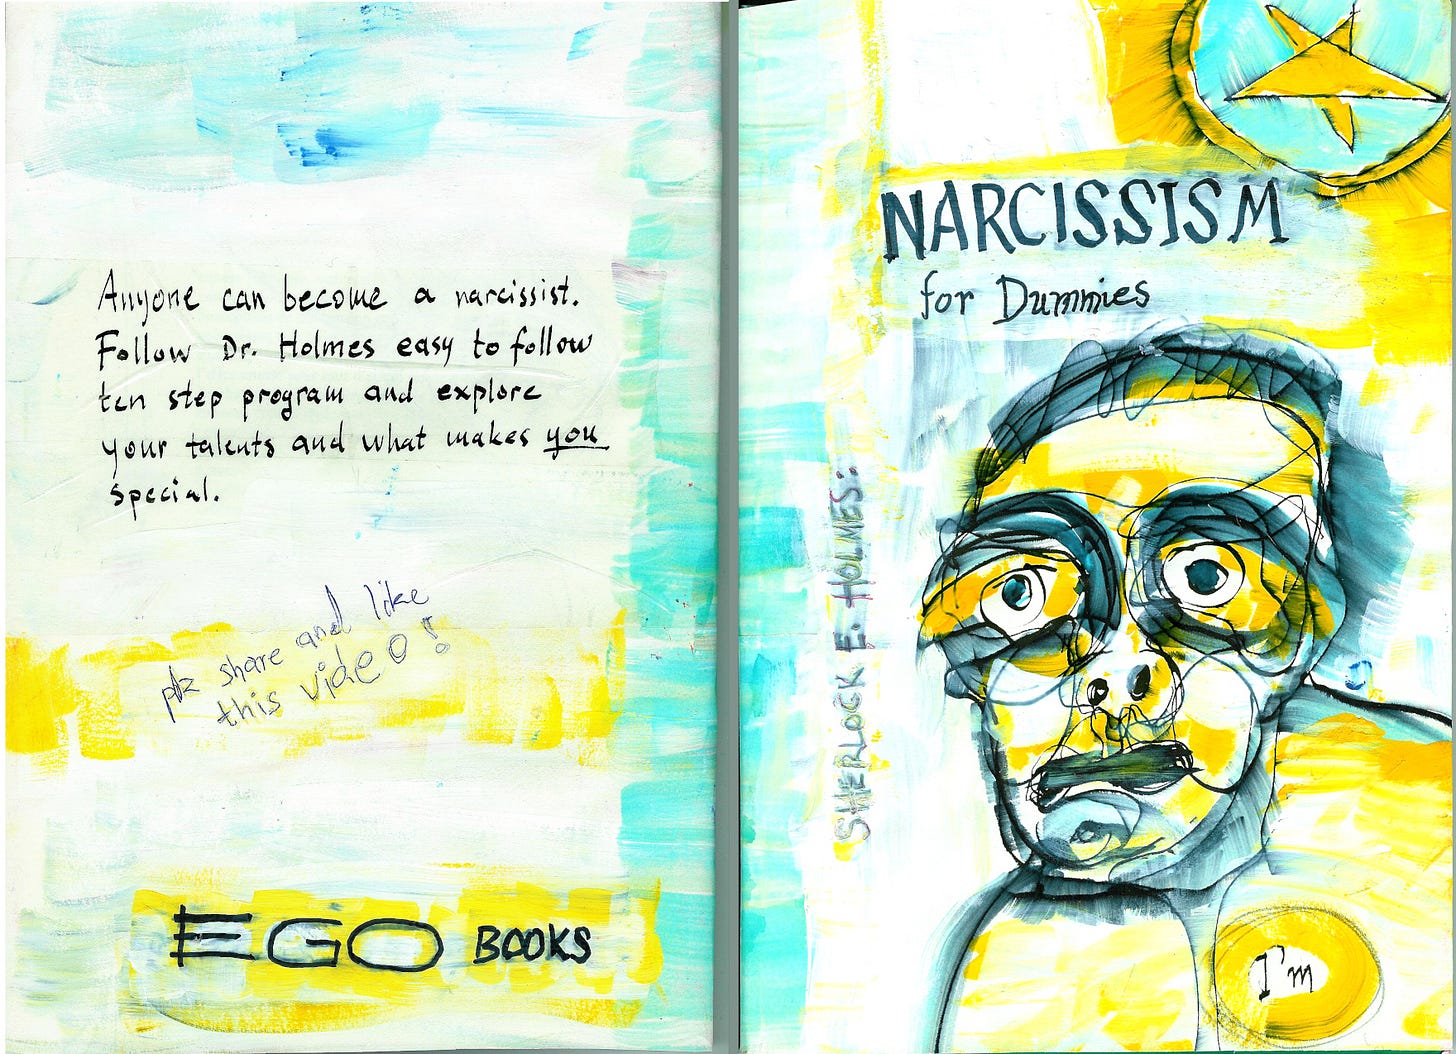 Anyone can become a narcissist.
Follow Dr. Holmes easy to follow
ten step program and explore
your talents and what makes you
special.
plz share and like
this video!
EGO BOOKS
NARCISSISM
for Dummies
SHERLOCK E. HOLMES:
I'm